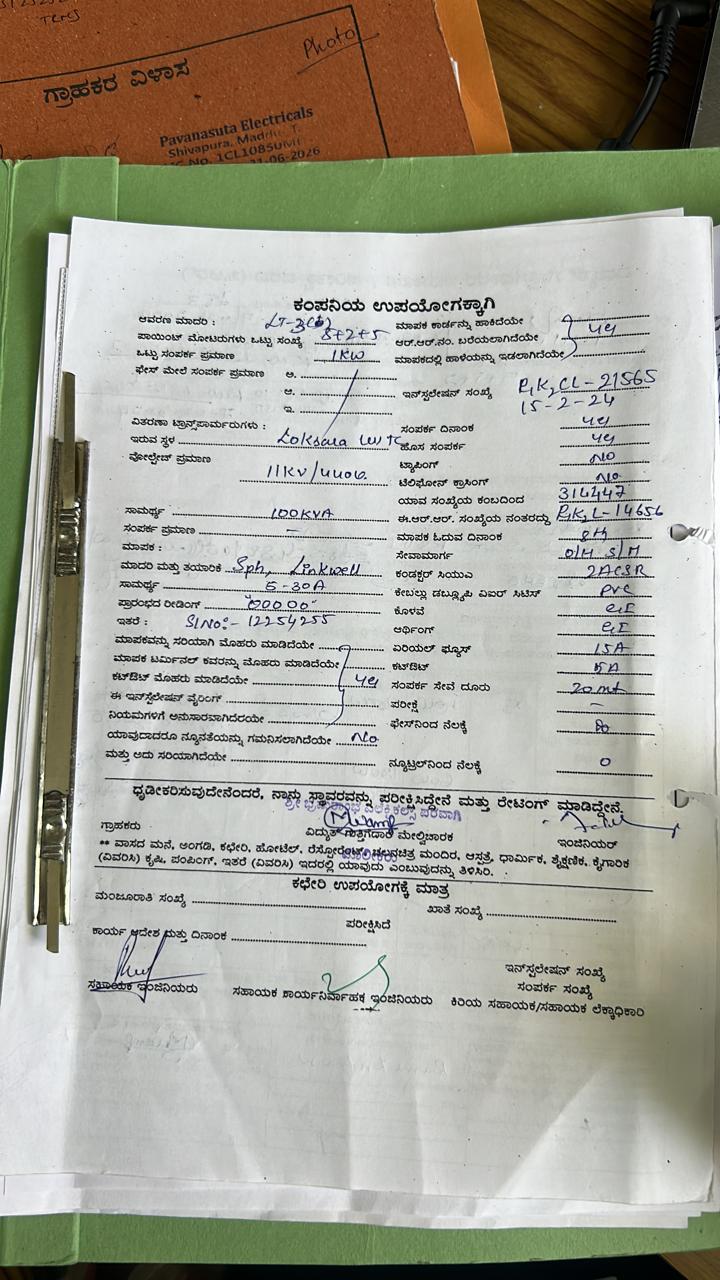 Teres
Photo
ಗ್ರಾಹಕರ ವಿಳಾಸ
Pavanasuta Electricals
Shivapura, Maddu. T.
No. 1CL1085UMI
-06-2026
ಕಂಪನಿಯ ಉಪಯೋಗಕ್ಕಾಗಿ
ಆವರಣ ಮಾದರಿ : LT-3
ಪಾಯಿಂಟ್ ಮೋಟರುಗಳು ಒಟ್ಟು ಸಂಖ್ಯೆ 8+2+5
ಒಟ್ಟು ಸಂಪರ್ಕ ಪ್ರಮಾಣ 1KW
ಫೇಸ್ ಮೇಲೆ ಸಂಪರ್ಕ ಪ್ರಮಾಣ ಅ.
ಆ.
ಇ.
ವಿತರಣಾ ಟ್ರಾನ್ಸ್‌ಪಾರ್ಮರುಗಳು :
ಇರುವ ಸ್ಥಳ Loksara
ವೋಲ್ಟೇಜ್ ಪ್ರಮಾಣ
11KV/440v.
ಸಾಮರ್ಥ್ಯ 100KVA
ಸಂಪರ್ಕ ಪ್ರಮಾಣ -
ಮಾಪಕ :
ಮಾದರಿ ಮತ್ತು ತಯಾರಿಕೆ Sph, Linkwell
ಸಾಮರ್ಥ್ಯ 5-30A
ಪ್ರಾರಂಭದ ರೀಡಿಂಗ್ "00000"
ಇತರೆ : Sl No:- 12254255
ಮಾಪಕವನ್ನು ಸರಿಯಾಗಿ ಮೊಹರು ಮಾಡಿದೆಯೇ
ಮಾಪಕ ಟರ್ಮಿನಲ್ ಕವರನ್ನು ಮೊಹರು ಮಾಡಿದೆಯೇ
ಕಟ್‌ಔಟ್ ಮೊಹರು ಮಾಡಿದೆಯೇ yes
ಈ ಇನ್‌ಸ್ಟಲೇಷನ್ ವೈರಿಂಗ್
ನಿಯಮಗಳಿಗೆ ಅನುಸಾರವಾಗಿದೆರಯೇ
ಯಾವುದಾದರೂ ನ್ಯೂನತೆಯನ್ನು ಗಮನಿಸಲಾಗಿದೆಯೇ No
ಮತ್ತು ಅದು ಸರಿಯಾಗಿದೆಯೇ
ಮಾಪಕ ಕಾರ್ಡನ್ನು ಹಾಕಿದೆಯೇ
ಆರ್.ಆರ್.ನಂ. ಬರೆಯಲಾಗಿದೆಯೇ yes
ಮಾಪಕದಲ್ಲಿ ಹಾಳೆಯನ್ನು ಇಡಲಾಗಿದೆಯೇ
ಇನ್‌ಸ್ಟಲೇಷನ್ ಸಂಖ್ಯೆ -21565
15-2-24
ಸಂಪರ್ಕ ದಿನಾಂಕ yes
ಹೊಸ ಸಂಪರ್ಕ yes
ಟ್ಯಾಪಿಂಗ್ NO
ಟೆಲಿಫೋನ್ ಕ್ರಾಸಿಂಗ್ No
ಯಾವ ಸಂಖ್ಯೆಯ ಕಂಬದಿಂದ 314447
ಈ.ಆರ್.ಆರ್. ಸಂಖ್ಯೆಯ ನಂತರದ್ದು -14656
ಮಾಪಕ ಓದುವ ದಿನಾಂಕ 8th
ಸೇವಾಮಾರ್ಗ O/H S/M
ಕಂಡಕ್ಟರ್ ಸಿಯುಎ 2ACSR
ಕೇಬಲ್ಲು ಡಬ್ಲ್ಯೂಪಿ ವಿಐರ್ ಸಿಟಿಸ್ PVC
ಕೊಳವೆ GI
ಆರ್ಥಿಂಗ್ GI
ಏರಿಯಲ್ ಫ್ಯೂಸ್ 15A
ಕಟ್‌ಔಟ್ 15A
ಸಂಪರ್ಕ ಸೇವೆ ದೂರು 20 mt
ಪರೀಕ್ಷೆ -
ಫೇಸ್‌ನಿಂದ ನೆಲಕ್ಕೆ
ನ್ಯೂಟ್ರಲ್‌ನಿಂದ ನೆಲಕ್ಕೆ 0
ಧೃಡೀಕರಿಸುವುದೇನೆಂದರೆ, ನಾನು ಸ್ಥಾವರವನ್ನು ಪರೀಕ್ಷಿಸಿದ್ದೇನೆ ಮತ್ತು ರೇಟಿಂಗ್ ಮಾಡಿದ್ದೇನೆ.
ಗ್ರಾಹಕರು ವಿದ್ಯುತ್ ಗುತ್ತಿಗೆದಾರ ಮೇಲ್ವಿಚಾರಕ ಇಂಜಿನಿಯರ್
** ವಾಸದ ಮನೆ, ಅಂಗಡಿ, ಕಛೇರಿ, ಹೋಟೆಲ್, ರೆಸ್ಟೋರೆಂಟ್, ಚಲನಚಿತ್ರ ಮಂದಿರ, ಆಸ್ಪತ್ರೆ, ಧಾರ್ಮಿಕ, ಶೈಕ್ಷಣಿಕ, ಕೈಗಾರಿಕ
(ವಿವರಿಸಿ) ಕೃಷಿ, ಪಂಪಿಂಗ್, ಇತರೆ (ವಿವರಿಸಿ) ಇದರಲ್ಲಿ ಯಾವುದು ಎಂಬುವುದನ್ನು ತಿಳಿಸಿರಿ.
ಕಛೇರಿ ಉಪಯೋಗಕ್ಕೆ ಮಾತ್ರ
ಮಂಜೂರಾತಿ ಸಂಖ್ಯೆ ಖಾತೆ ಸಂಖ್ಯೆ
ಪರೀಕ್ಷಿಸಿದೆ
ಕಾರ್ಯ ಆದೇಶ ಮತ್ತು ದಿನಾಂಕ
ಇನ್‌ಸ್ಟಲೇಷನ್ ಸಂಖ್ಯೆ
ಸಂಪರ್ಕ ಸಂಖ್ಯೆ
ಸಹಾಯಕ ಇಂಜಿನಿಯರು ಸಹಾಯಕ ಕಾರ್ಯನಿರ್ವಾಹಕ ಇಂಜಿನಿಯರು ಕಿರಿಯ ಸಹಾಯಕ/ಸಹಾಯಕ ಲೆಕ್ಕಾಧಿಕಾರಿ